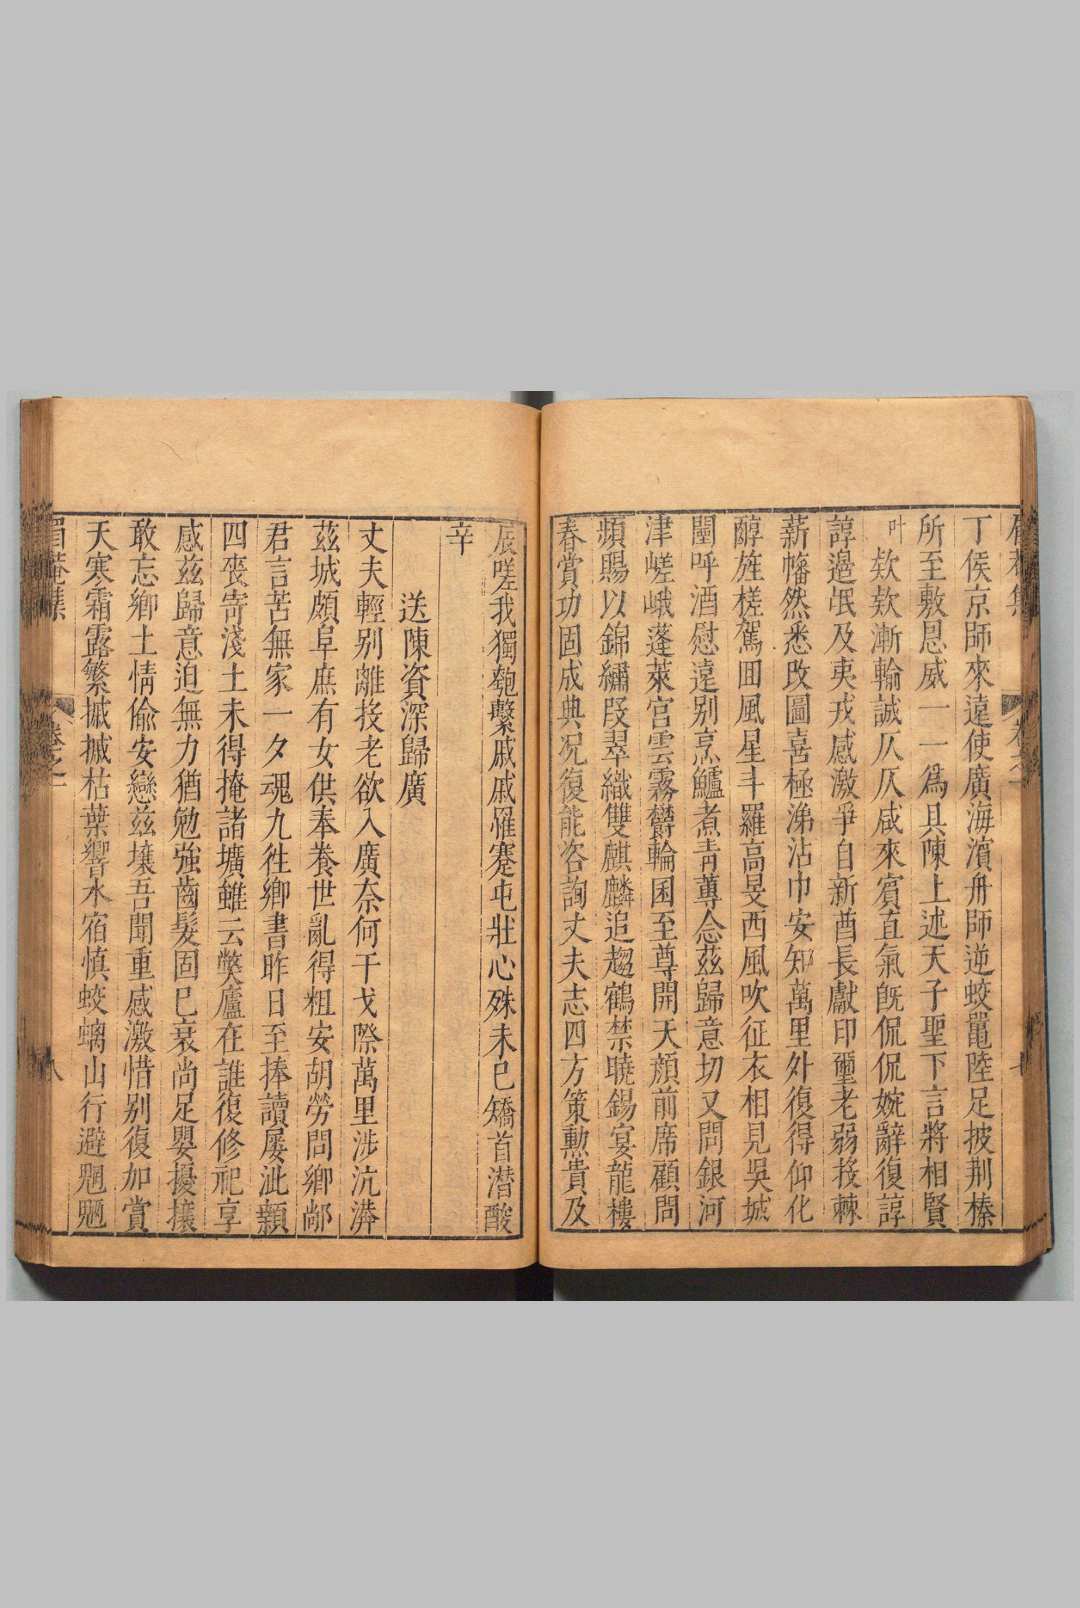 丁侯京師來遠使廣海濵舟師逆蛟鼉陸足披荆榛
所至敷恩威一一爲具陳上述天子聖下言將相賢
叶欵欵漸輸誠仄仄咸來賓直氣旣侃侃婉辭復諄
諄邉氓及夷戎感激爭自新酋長獻印璽老弱投棘
薪幡然悉攺圖喜極涕沾巾安知萬里外復得仰化
醇旌槎駕囬風星斗羅高旻西風吹征衣相見吳城
闉呼酒慰遠别烹鱸煮青蓴念茲歸意切又問銀河
津嵯峨蓬萊宫雲霧欝輪囷至尊開天顔前席顧問
頻賜以錦繡段翠織雙麒麟追趨鶴禁曉錫宴龍樓
春賞功固成典况復能咨詢丈夫志四方策勲貴及
辰嗟我獨匏繫戚戚罹蹇屯壯心殊未已矯首潛酸
辛
送陳資深歸廣
丈夫輕别離投老欲入廣奈何干戈際萬里涉沆漭
茲城頗阜庶有女供奉養世亂得粗安胡勞問鄉鄙
君言苦無家一夕魂九徃鄉書昨日至捧讀屢泚顙
四喪寄淺土未得掩諸壙雖云獘廬在誰復修祀享
感茲歸意迫無力猶勉強齒髮固已衰尚足嬰擾攘
敢忘鄉土情偷安戀茲壤吾聞重感激惜别復加賞
天寒霜露繁摵摵枯葉響水宿慎蛟螭山行避魍魎
眉菴集
卷之一
八